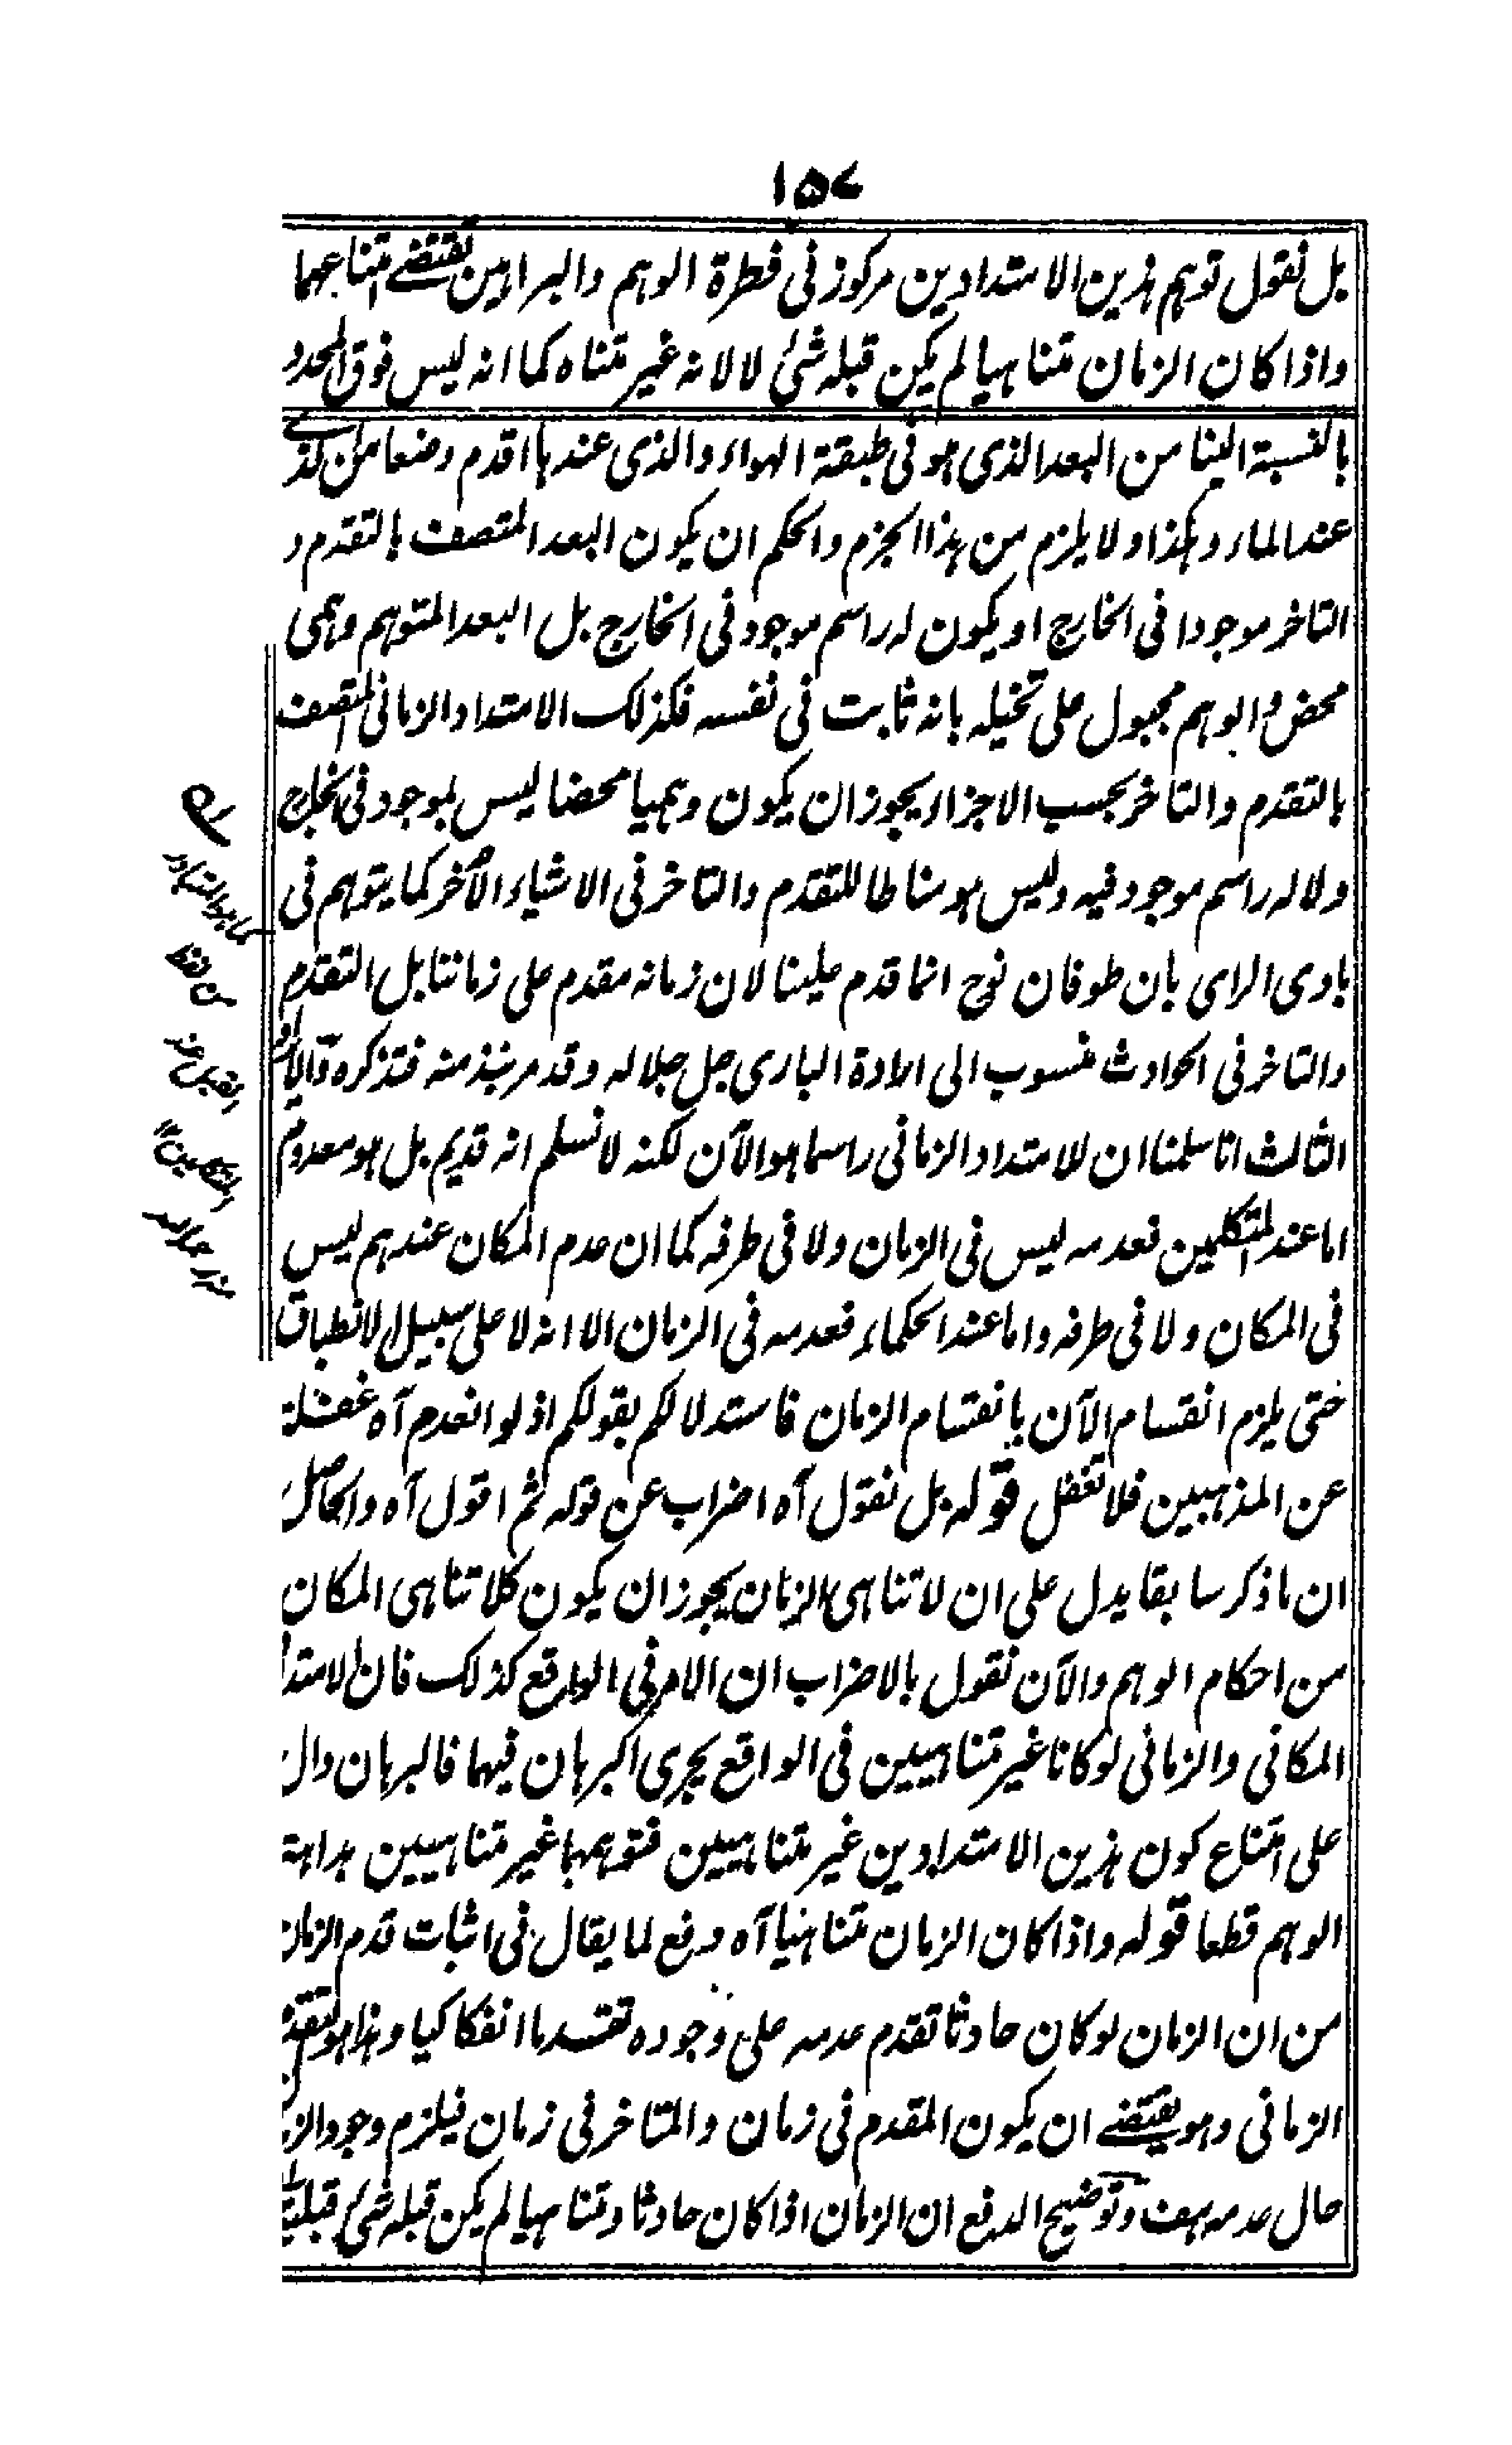 ١٥٧
بل نقول توهم هذين الامتدادين مركوز فى فطرة الوهم والبراهين تقتضے امتناعهما
واذا كان الزمان متناهيا لم يكن قبله شئ لا لانه غير متناه كما انه ليس فوق المحدد
بالنسبة الينا من البعد الذى هو فى طبقة الهواء والذى عندها اقدم وضعا من الذے
عند الماء وهكذا ولا يلزم من هذا الجزم والحكم ان يكون البعد المتصف بالتقدم و
التاخر موجودا فى الخارج او يكون له راسم موجود فى الخارج بل البعد المتوهم وهمى
محض والوهم مجبول على تخيله بانه ثابت فى نفسه فكذلك الامتداد الزمانى المتصف
بالتقدم والتاخر بحسب الاجزاء يجوز ان يكون وهميا محضا ليس بموجود فى الخارج
ولا له راسم موجود فيه وليس هو مناطا للتقدم والتاخر فى الاشياء الأخر كما يتوهم فى
بادى الراى بان طوفان نوح انما قدم علينا لان زمانه مقدم على زماننا بل التقدم
والتاخر فى الحوادث منسوب الى ارادة البارى جل جلاله وقد مر نبذ منه فتذكره والايراد
الثالث انا سلمنا ان للامتداد الزمانى راسما هو الآن لكنه لا نسلم انه قديم بل هو معدوم
اما عند المتكلمين فعدمه ليس فى الزمان ولا فى طرفه كما ان عدم المكان عندهم ليس
فى المكان ولا فى طرفه واما عند الحكماء فعدمه فى الزمان الا انه لا على سبيل الانطباق
حتى يلزم انقسام الآن بانقسام الزمان فاستدلالكم بقولكم اذ لو انعدم آه غفلة
عن المذهبين فلا تغفل قوله بل نقول آه اضراب عن قوله ثم اقول آه والحاصل
ان ما ذكر سابقا يدل على ان لا تناهى الزمان يجوز ان يكون كلا تناهى المكان
من احكام الوهم والآن نقول بالاضراب ان الامر فى الواقع كذلك فان الامتداد
المكانى والزمانى لو كانا غير متناهيين فى الواقع يجرى البرهان فيهما فالبرهان دال
على امتناع كون هذين الامتدادين غير متناهيين فتوهمهما غير متناهيين بداهة
الوهم قطعا قوله واذا كان الزمان متناهيا آه دفع لما يقال فى اثبات قدم الزمان
من ان الزمان لو كان حادثا تقدم عدمه على وجوده تقدما انفكاكيا وهذا هو التقدم
الزمانى وهو يقتضے ان يكون المقدم فى زمان والمتاخر فى زمان فيلزم وجود الزمان
حال عدمه هف وتوضيح الدفع ان الزمان اذا كان حادثا ومتناهيا لم يكن قبله شئ قبلية
كما هو المتبادر
من لفظ
عند
المتكلمين